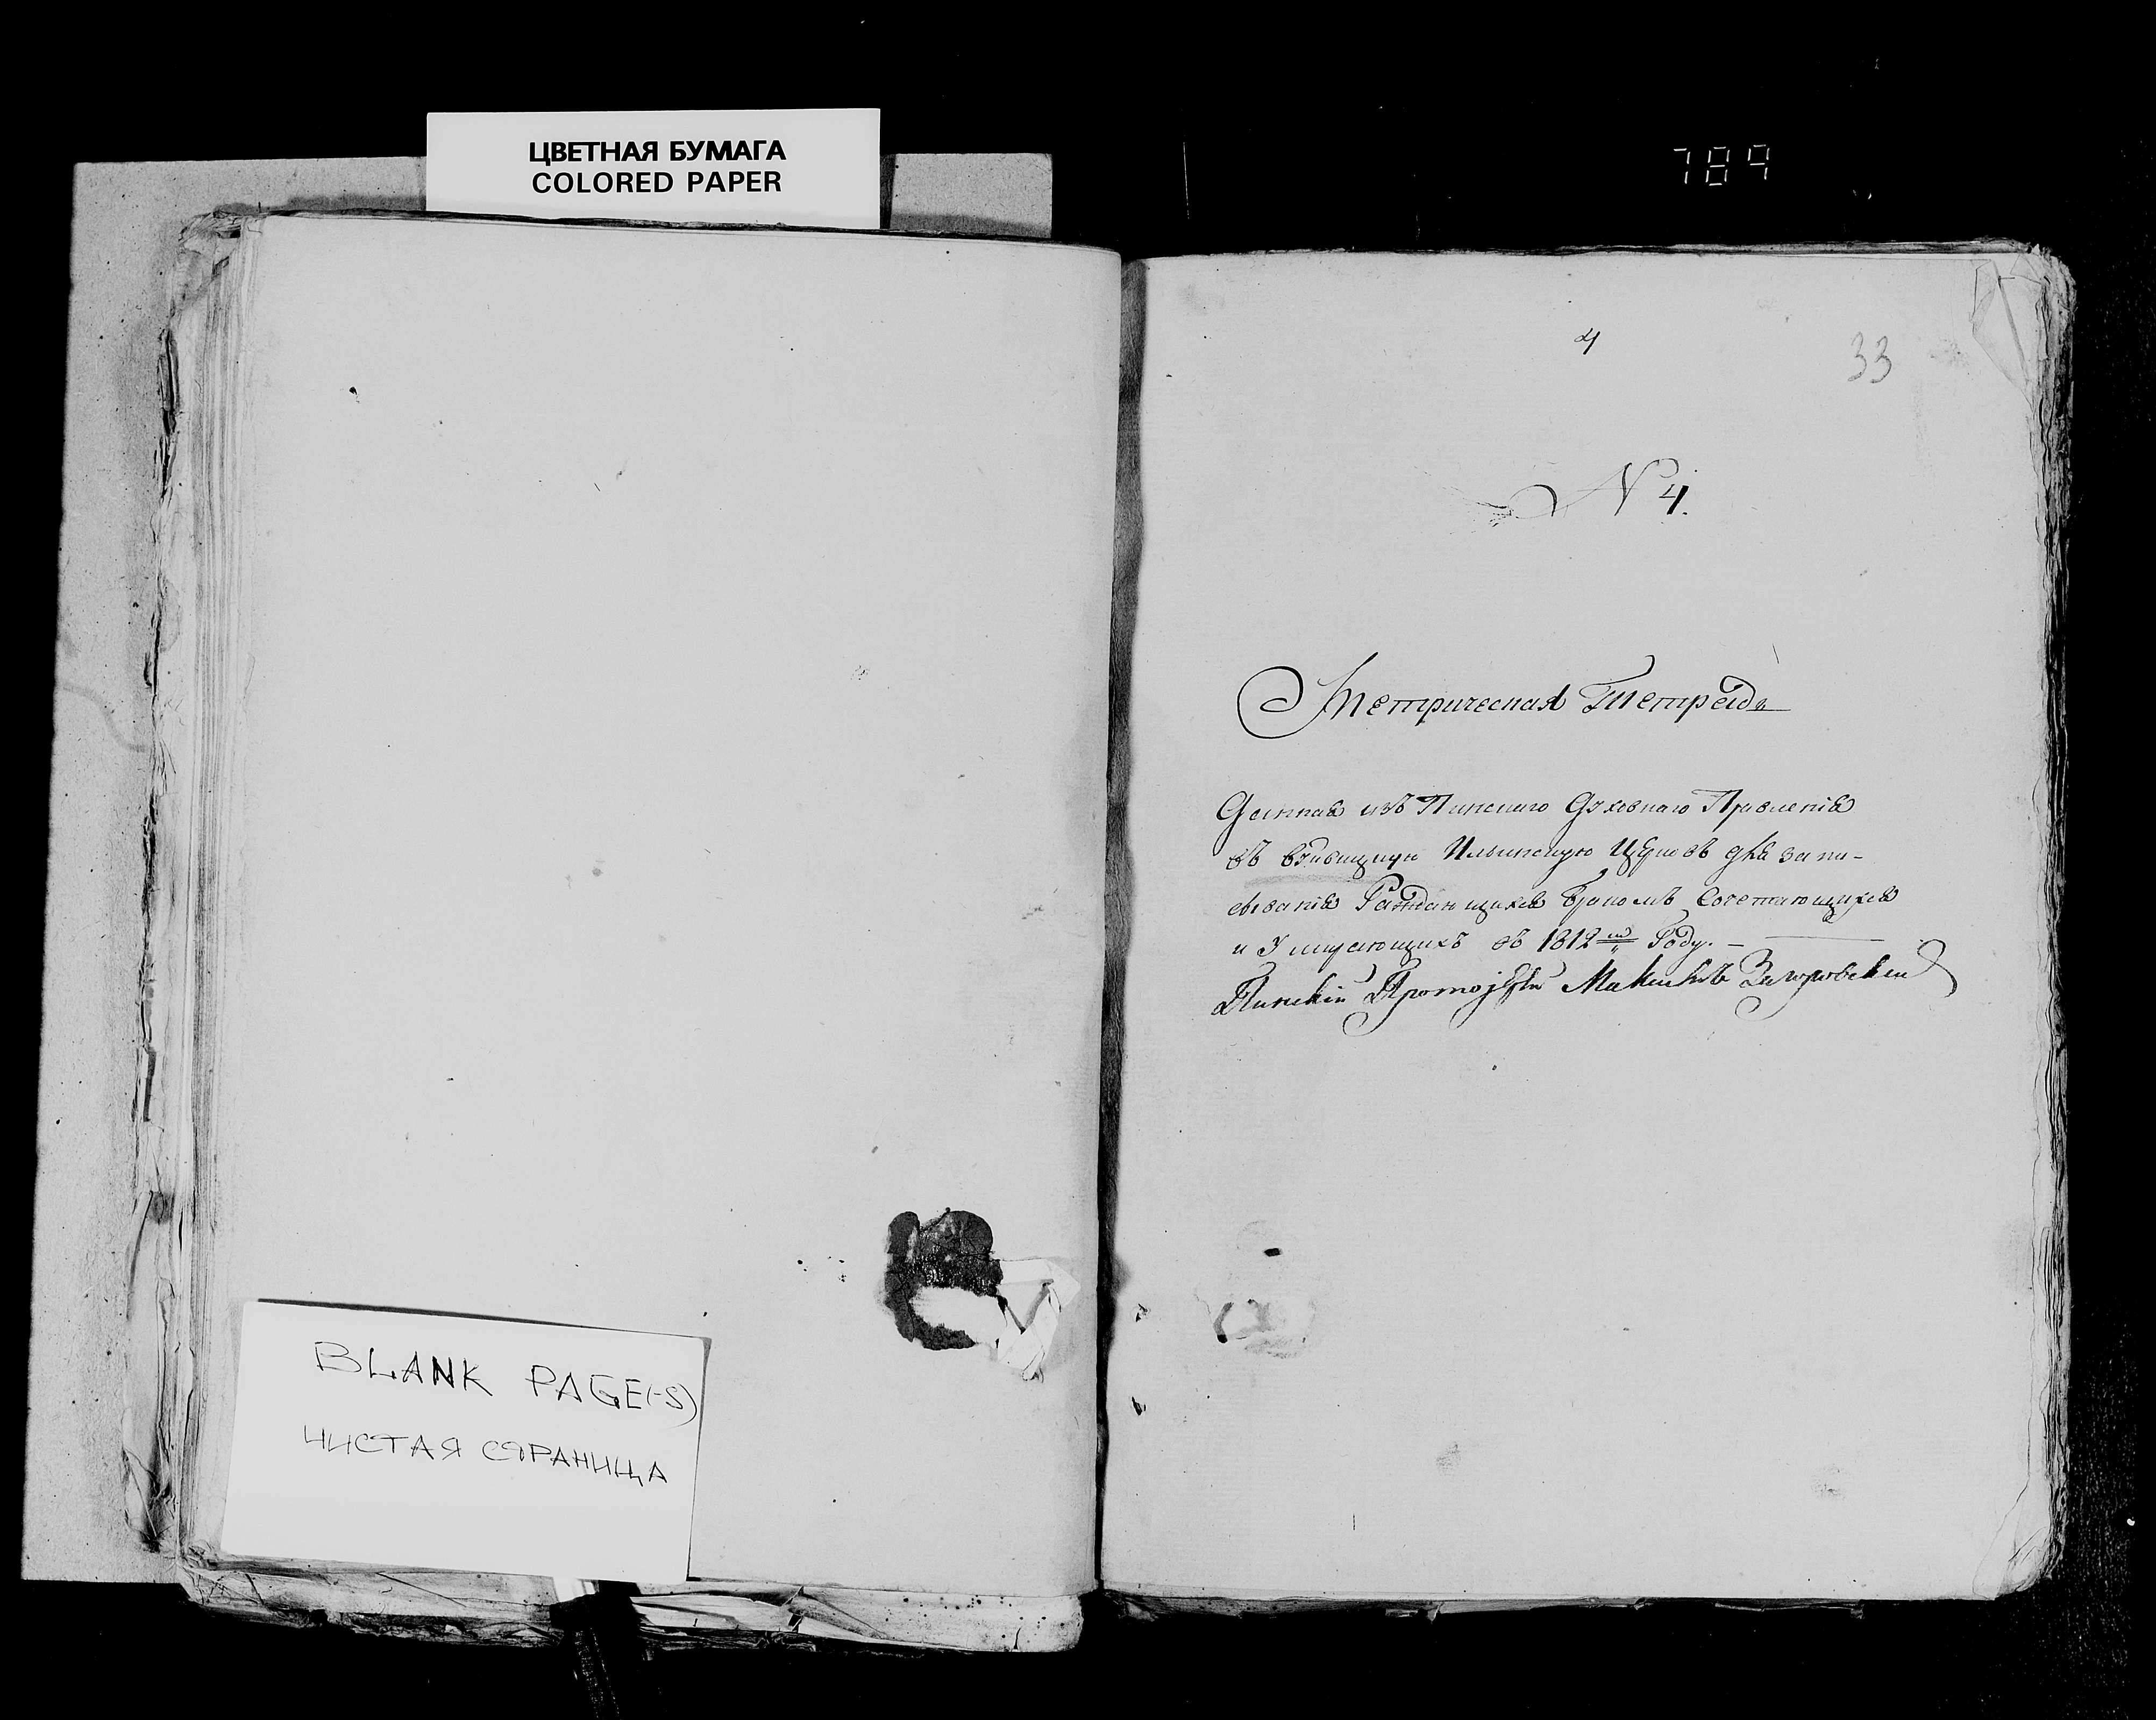 ЦВЕТНАЯ БУМАГА
COLORED PAPER
789
4
33
N 4.
Метрическая Тетрадь
Данная изъ Пинскаго Духовнаго Правленія
въ Ильинскую Церковь для запи-
сыванія Раждающихся Бракомъ Сочетающихся
и Умирающихъ въ 1812м Году.
Пинскій Протоіерей Загоровскій
BLANK PAGE(-S)
ЧИСТАЯ СТРАНИЦА